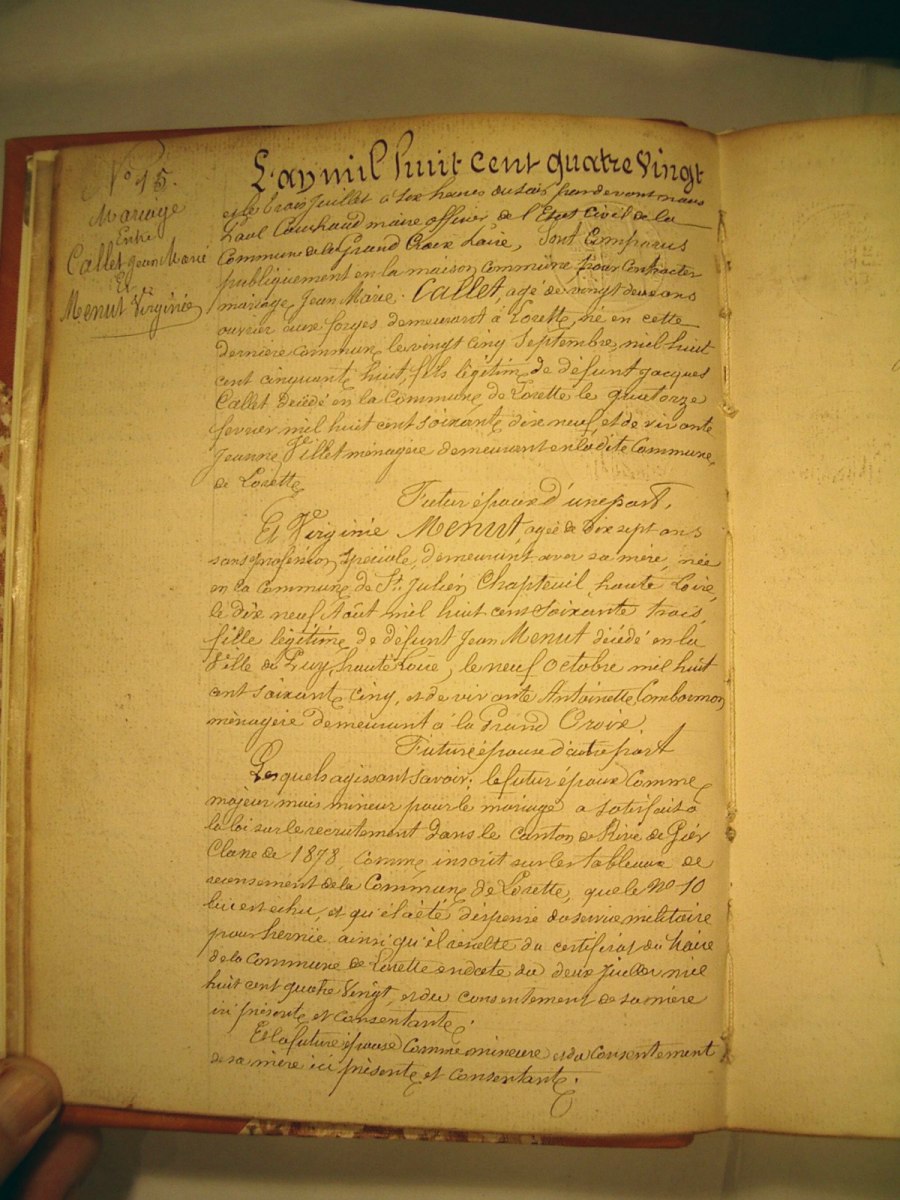 N° 15.
Mariage
Entre
Callet Jean Marie
Et
Menut Virginie
L'an mil huit cent quatre Vingt
et le trois Juillet à six heures du soir par devant nous
Paul maire officier de l'Etat Civil de la
Commune de la Grand Croix Loire, Sont Comparus
publiquement en la maison commune pour Contracter
mariage, Jean Marie Callet, agé de vingt deux ans
ouvrier aux forges demeurant à Lorette, né en cette
dernière commune le vingt cinq Septembre mil huit
cent cinquante huit, fils légitime de défunt Jacques
Callet décédé en la Commune de Lorette le quatorze
fevrier mil huit cent soixante dix neuf et de vivante
Jeanne Fillet ménagère demeurant en la dite Commune
de Lorette
Futur époux d'une part,
Et Virginie Menut, agée de dix sept ans
sans profession spéciale, demeurant avec sa mère, née
en la Commune de St. Julien Chapteuil, haute Loire,
le dix neuf Août mil huit cent soixante trois
fille légitime de défunt Jean Menut décédé en la
Ville du Puy, haute Loire, le neuf octobre mil huit
cent soixante cinq, et de vivante Antoinette
ménagère demeurant à la Grand Croix
Future épouse d'autre part
Lesquels agissant savoir; le futur époux Comme
majeur mais mineur pour le mariage a satisfait à
la loi sur le recrutement dans le canton de Rive de Gier
Classe de 1878, comme inscrit sur les tableaux de
recensement de la Commune de Lorette, que le N° 10
lui est echu, et qu'il a été dispensé du service militaire
pour hernie ainsi qu'il résulte du certificat du Maire
de la Commune de Lorette en date du deux Juillet mil
huit cent quatre Vingt, et du consentement de sa mère
ici présente et consentante;
Et la future épouse Comme mineure et du Consentement
de sa mère ici présente et consentante.